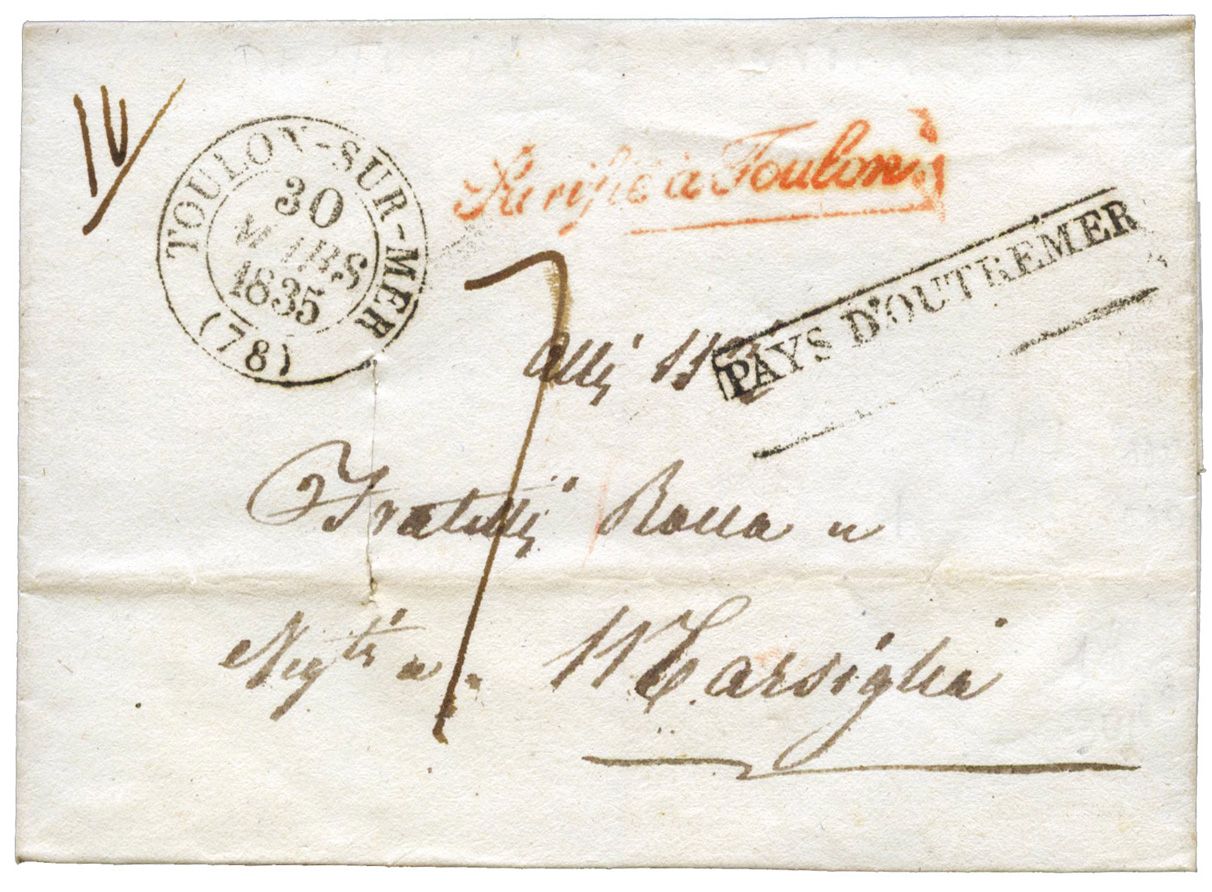 TOULON-SUR-MER
30
MARS
1835
(78)
Purifié à Toulon
PAYS D'OUTREMER
7
Alli
Fratelli Rocca
Negti a Marsiglia